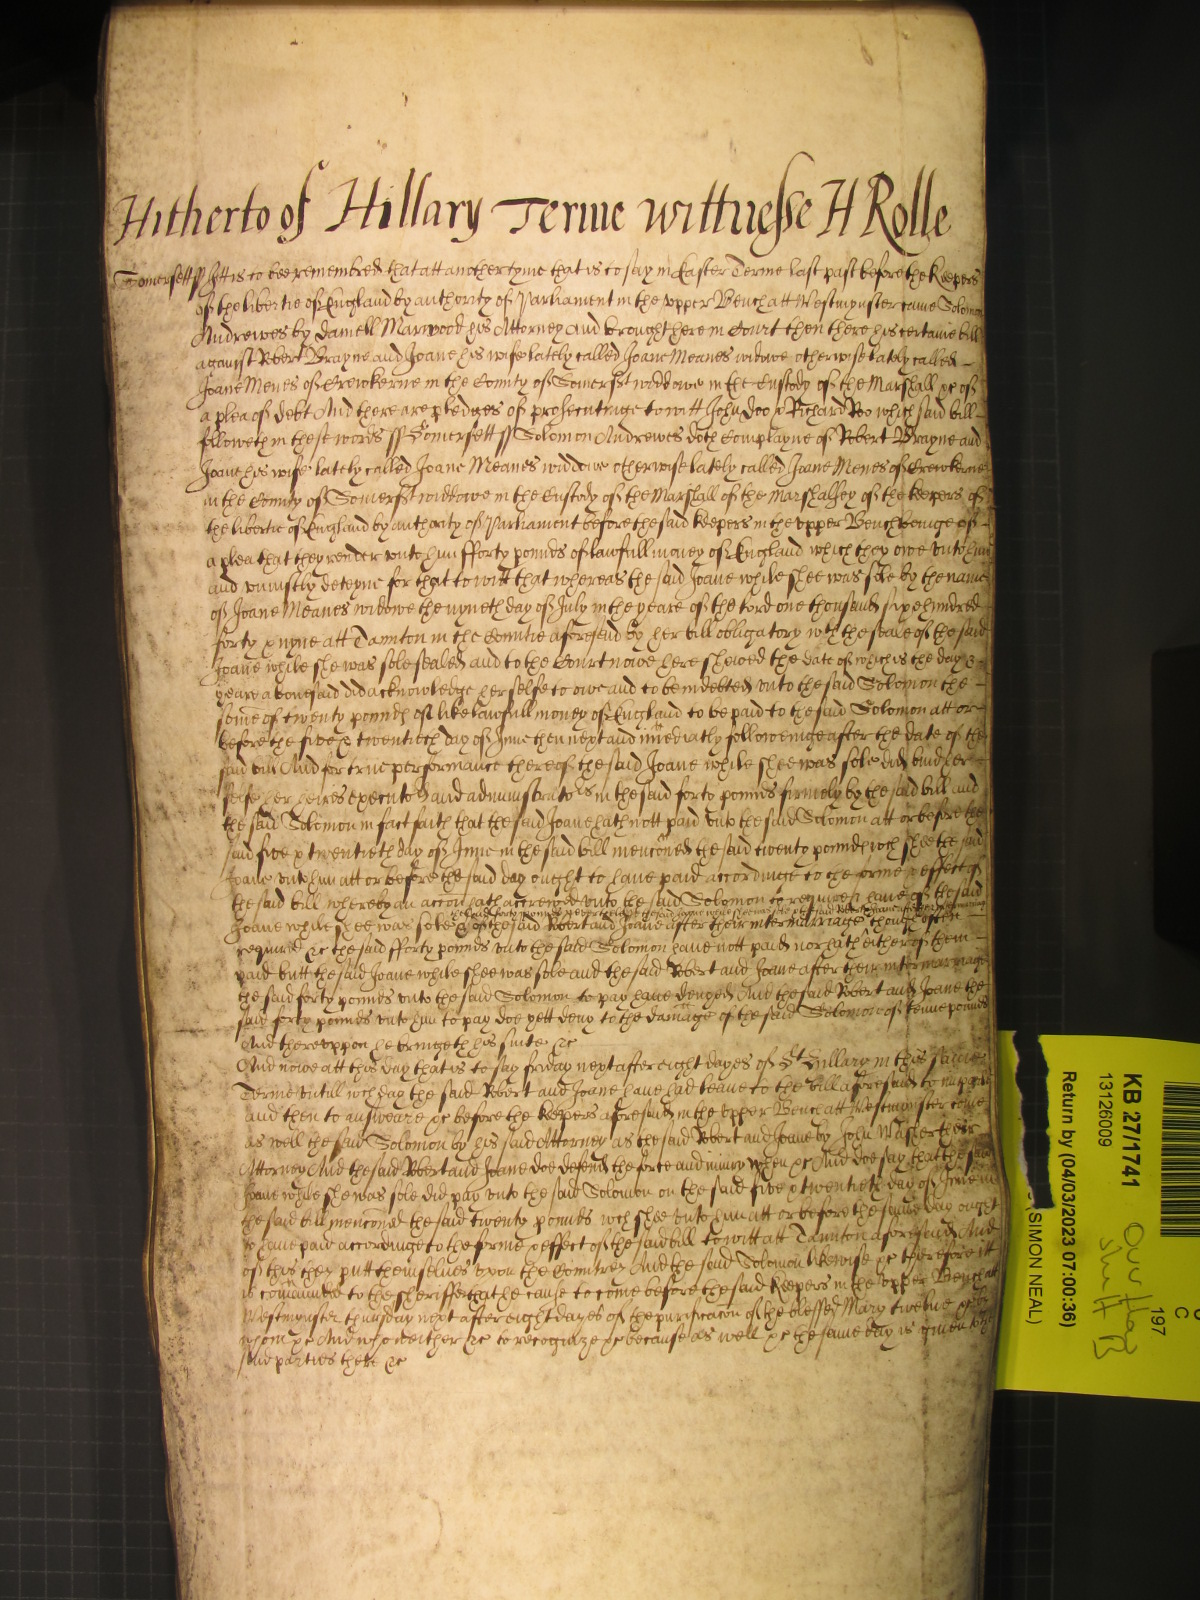 Hitherto of Hillary Terme wittnesse H Rolle
Somersett ss Itt is to bee remembred that att another tyme that is to say in Easter Terme last past before the Keepers
of the libertie of England by authority of Parliament in the upper Bench att Westmynster came Solomon
Andrewes by Daniell Marwood his Attorney And brought here in Court then there his certaine bill
against Robert Brayne and Joane his wife lately called Joane Meanes widowe otherwise lately called
Joane Menes of Crewkerne in the County of Somerst widdowe in the Custody of the Marshall &c of
a plea of debt And there are pledges of prosecutinge to witt John Doo & Richard Roo which said bill
followeth in these words ss Somersett ss Solomon Andrewes doth Complayne of Robert Brayne and
Joane his wife lately called Joane Meanes widdowe otherwise lately called Joane Menes of Crewkerne
in the County of Somerst widdowe in the Custody of the Marshall of the Marshalsey of the Keepers of
the libertie of England by authority of Parliament before the said Keepers in the upper Bench beinge of
a plea that they render unto him fforty pounds of lawfull money of England which they owe unto him
and uniustly deteyne for that to witt that whereas the said Joane while shee was sole by the name
of Joane Meanes widowe the nyneth day of July in the yeare of the lord one thousand six hundred
forty & nyne att Taunton in the Countie aforesaid by her bill obligatory wth the seale of the said
Joane while she was sole sealed and to the Court nowe here shewed the date of which is the day &
yeare abovesaid did acknowledge her selfe to owe and to be indebted unto the said Solomon the
some of twenty pounds of like lawfull money of England to be paid to the said Solomon att or
before the five & twentieth day of June then next and imediatly followeinge after the date of the
said bill And for true performance thereof the said Joane while shee was sole did bind her
selfe her heires executors and administrators in the said forty pounds firmely by the said bill and
the said Solomon in fact saith that the said Joane hath nott paid unto the said Solomon att or before the
said five & twentieth day of June in the said bill menconed the said twenty pounds wch shee the said
Joane unto him att or before the said day ought to have paid accordinge to the forme & effect of
the said bill whereby an accon hath accrewed unto the said Solomon to require & have of the said
Joane while shee was sole & of the said Robert and Joane after their intermarriage though often
required &c the said fforty pounds unto the said Solomon have nott paid nor hath either of them
paid butt the said Joane while shee was sole and the said Robert and Joane after their intermarriage
the said forty pounds unto the said Solomon to pay have denyed And the said Robert and Joane the
said forty pounds unto him to pay doe yett deny to the damage of the said Solomon of tenne pounds
And thereuppon he bringeth his suite &c
And nowe att this day that is to say friday next after eight dayes of St Hillary in this same
Terme untill wch day the said Robert and Joane have had leave to the bill aforesaid to imparle
and then to answeare &c before the Keepers aforesaid in the upper Bench att Westmynster come
as well the said Solomon by his said Attorney as the said Robert and Joane by John their
Attorney And the said Robert and Joane doe defend the force and iniury when &c And doe say that the said
Joane while she was sole did pay unto the said Solomon on the said five & twentieth day of June in
the said bill menconed the said twenty pounds wch shee unto him att or before the same day ought
to have paid accordinge to the forme & effect of the said bill to witt att Taunton aforesaid And
of this they putt themselves upon the Countrey And the said Solomon likewise &c therefore itt
is comaunded to the sheriffe that he cause to come before the said Keepers in the upper Bench att
Westmynster thursday next after eight dayes of the purificacon of the blessed Mary twelve &c by
whom &c And who neither &c to recognize &c because as well &c the same day is given to the
said parties there &c
KB 27/1741
13126009
Return by (04/03/2023 07:00:36)
SIMON NEAL)
197
C